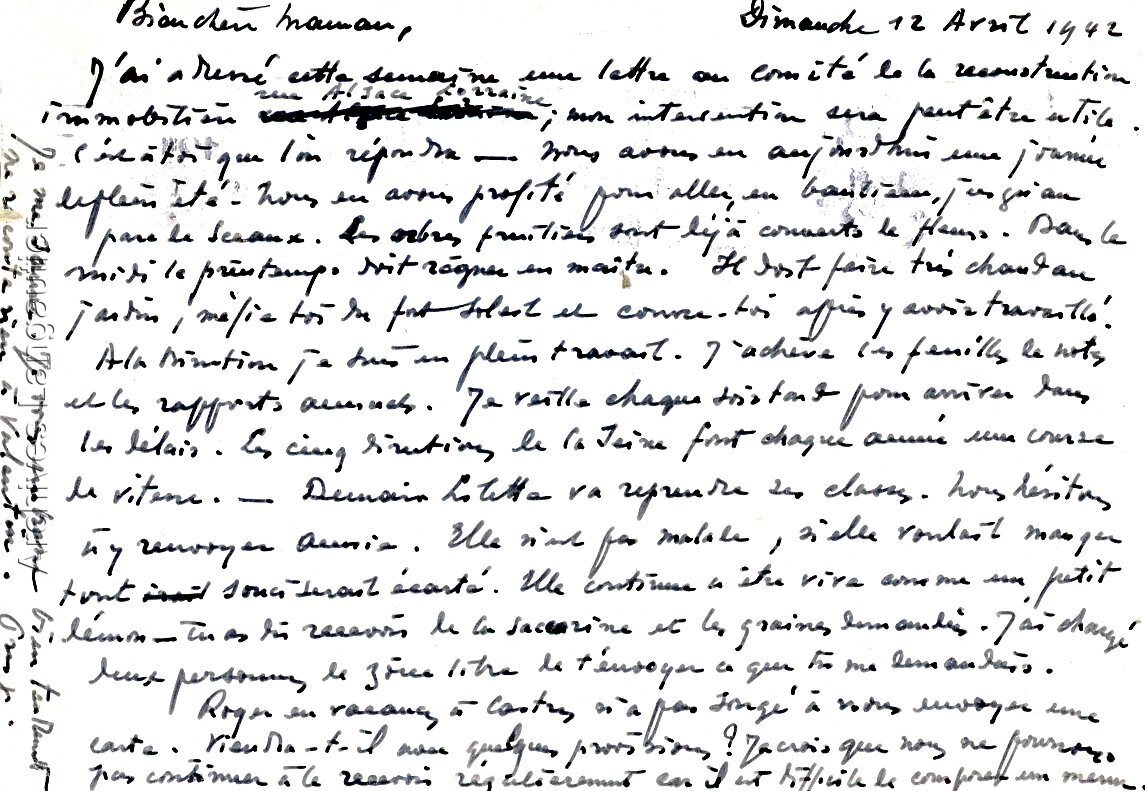 Bien chère Maman,
Dimanche 12 Avril 1942
J'ai adressé cette semaine une lettre au comité de la reconstruction
rue Alsace Lorraine
immobilière ; mon intervention sera peut être utile.
C'est à toi que l'on répondra — Nous avons eu aujourd'hui une journée
de plein été - Nous en avons profité pour aller, en banlieue, jusqu'au
parc de Sceaux. Les arbres fruitiers sont déjà couverts de fleurs. Dans le
midi le printemps doit régner en maître. Il doit faire très chaud au
jardin, méfie toi du fort soleil et couvre-toi après y avoir travaillé.
A la Direction je suis en plein travail. J'achève les feuilles de notes
et les rapports annuels. Je veille chaque soir tard pour arriver dans
les délais. Les cinq directions de la Seine font chaque année une course
de vitesse. — Demain Lolette va reprendre ses classes. Nous hésitons
à y renvoyer Annie. Elle n'est pas malade, si elle voulait manger
tout souci serait écarté. Elle continue à être vive comme un petit
démon — Tu as dû recevoir de la saccarine et les graines demandées. J'ai chargé
deux personnes de zone libre de t'envoyer ce que tu me demandais.
Roger en vacances à Castres n'a pas songé à nous envoyer une
carte. Viendra-t-il avec quelques provisions ? Je crois que nous ne pourrons
pas continuer à le recevoir régulièrement car il est difficile de composer un menu.
Je me bien tendrement
ne racontez rien à Valentine.